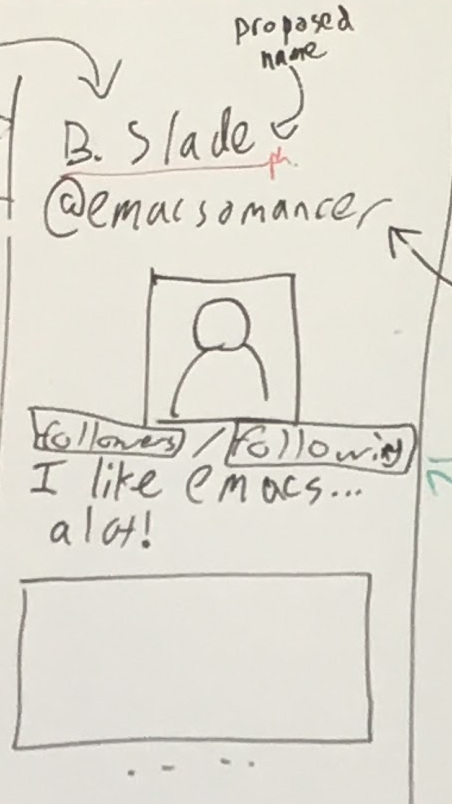 proposed
name
B. Slade
@emacsomancer
followers / following
I like emacs...
alot!